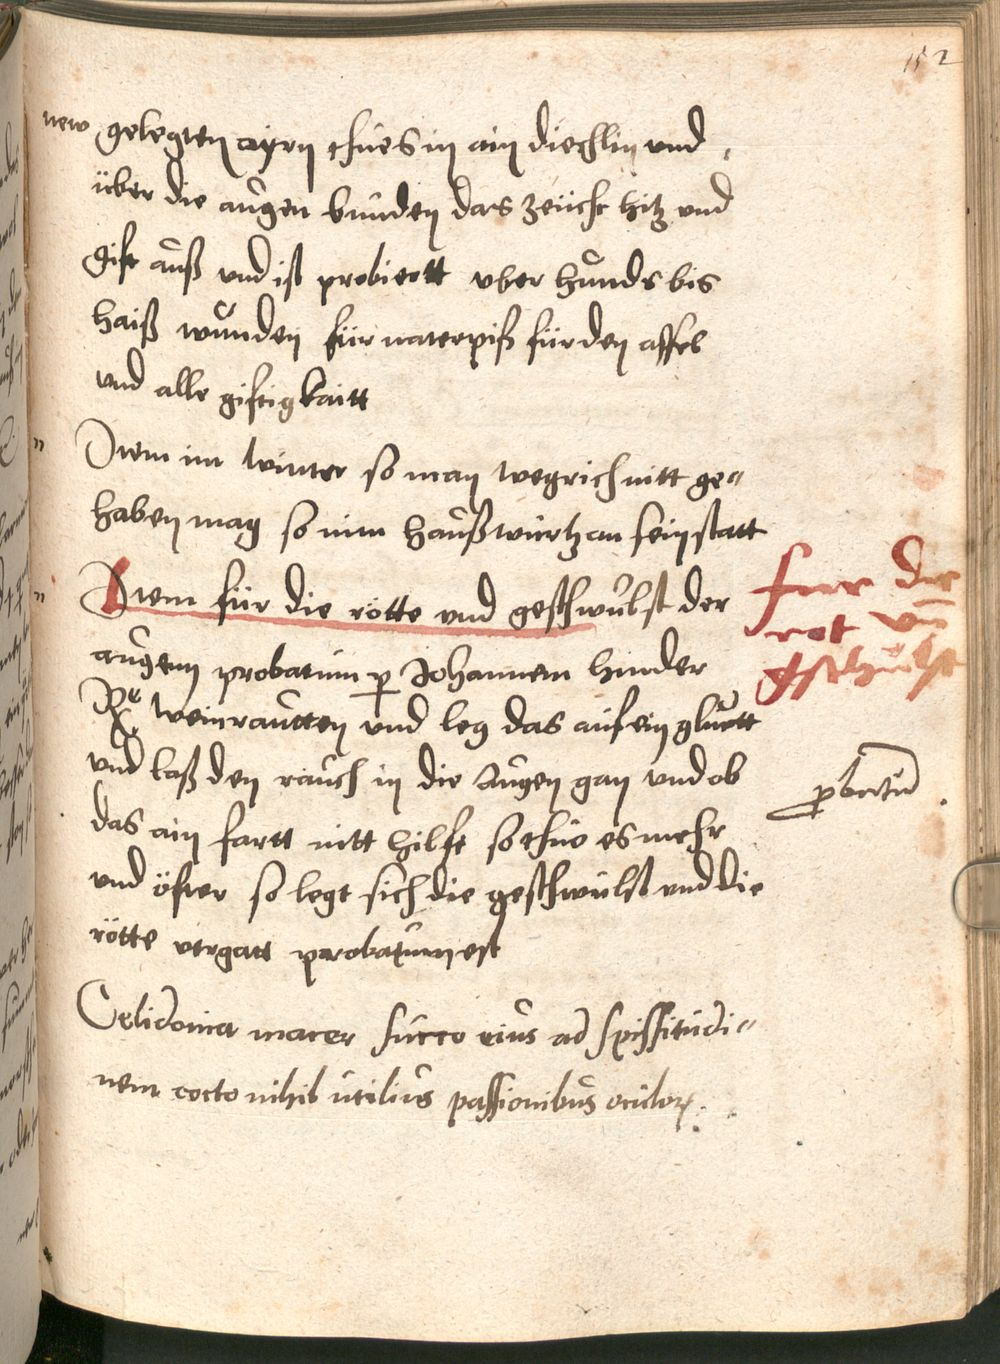 152
new gelegten ayrn thues in ain diechlin und
über die augen bunden das zeücht hitz und
gift auß und ist probiertt vber hunds bis
haiß wunden für naterpiß für den affel
und alle giftigkaitt
Item im winter so man wegrich nitt ge-
haben mag so nim haußwurtz an sein statt
Item für die rötte und geschwulst der
augenn probatum p Johannem hinder
Rc weinrautten und leg das auf ein gluett
und laß den rauch in die Augen gan und ob
das ain fartt nitt hilft so thuo es mehr
und öfter so legt sich die geschwulst und die
rötte vergatt probatum est
Celidonia macer succo eius ad spissitudi-
nem cocto nihil utilius passionibus oculor
fur die
rot un
gschwulst
pbatu